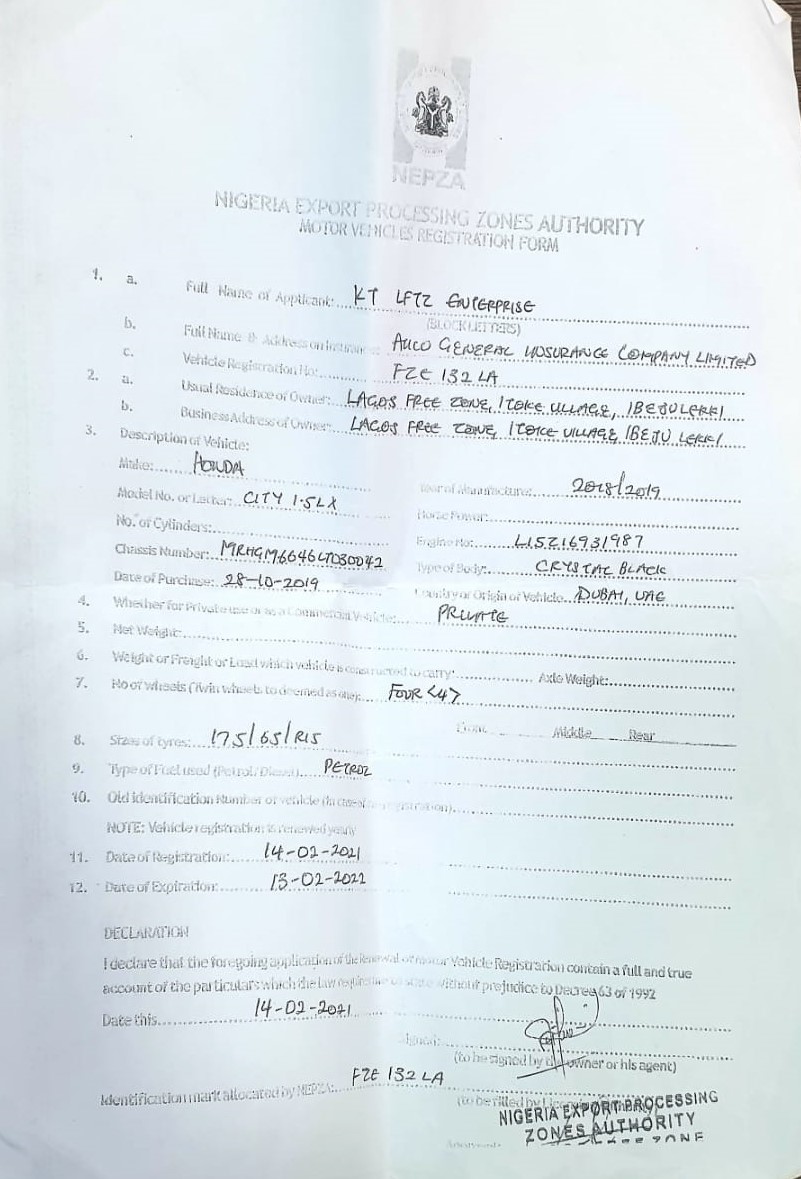 NEPZA
NIGERIA EXPORT PROCESSING ZONES AUTHORITY
MOTOR VEHICLES REGISTRATION FORM
1. a. Full Name of Applicant: KT LFTZ ENTERPRISE
(BLOCK LETTERS)
b. Full Name & Address on Insurance: AIICO GENERAL INSURANCE COMPANY LIMITED
c. Vehicle Registration No: FZE 132 LA
2. a. Usual Residence of Owner: LAGOS FREE ZONE, ITOKE VILLAGE, IBEJU LEKKI
b. Business Address of Owner: LAGOS FREE ZONE, ITOKE VILLAGE, IBEJU LEKKI
3. Description of Vehicle:
Make: HONDA Year of Manufacture: 2018/2019
Model No. or Letter: CITY 1.5LX Horse Power:
No. of Cylinders: Engine No: L15Z16931987
Chassis Number: MRHGM6646LT030042 Type of Body: CRYSTAL BLACK
Date of Purchase: 28-10-2019 Country of Origin of Vehicle: DUBAI, UAE
4. Whether for Private use or as a Commercial Vehicle: PRIVATE
5. Net Weight:
6. Weight or Freight or Load which vehicle is constructed to carry: Axle Weight:
7. No of wheels (Twin wheels to deemed as one): FOUR <4>
Front Middle Rear
8. Sizes of tyres: 175/65/R15
9. Type of Fuel used (Petrol/Diesel) PETROL
10. Old identification Number of vehicle (in case of registration)
NOTE: Vehicle registration is renewed yearly
11. Date of Registration: 14-02-2021
12. Date of Expiration: 13-02-2022
DECLARATION
I declare that the foregoing application of the renewal of motor Vehicle Registration contain a full and true
account of the particulars which the law requires me to state without prejudice to Decree 63 of 1992
Date this 14-02-2021
Signed:
(to be signed by the owner or his agent)
Identification mark allocated by NEPZA: FZE 132 LA
(to be filled by
NIGERIA EXPORT PROCESSING
ZONES AUTHORITY
ZONE